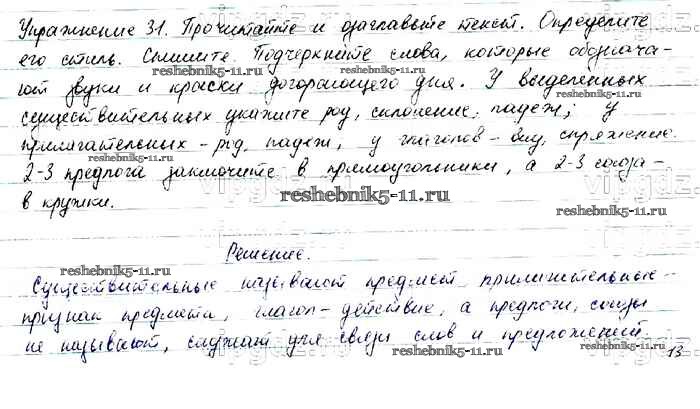 Упражнение 31. Прочитайте и озаглавьте текст. Определите
его стиль. Спишите. Подчеркните слова, которые обознача-
reshebnik5-11.ru
reshebnik5-11.ru
ют звуки и краски догорающего дня. У выделенных
существительных укажите род, склонение, падеж; у
прилагательных - род, падеж, у глаголов - вид, спряжение.
2-3 предлога заключите в прямоугольники, а 2-3 союза -
reshebnik5-11.ru
в кружки.
Решение.
reshebnik5-11.ru
reshebnik5-11.ru
Существительные называют предмет, прилагательные -
признак предмета, глагол - действие, а предлоги, союзы
не называют, служат для связи слов и предложений.
reshebnik5-11.ru
reshebnik5-11.ru
13